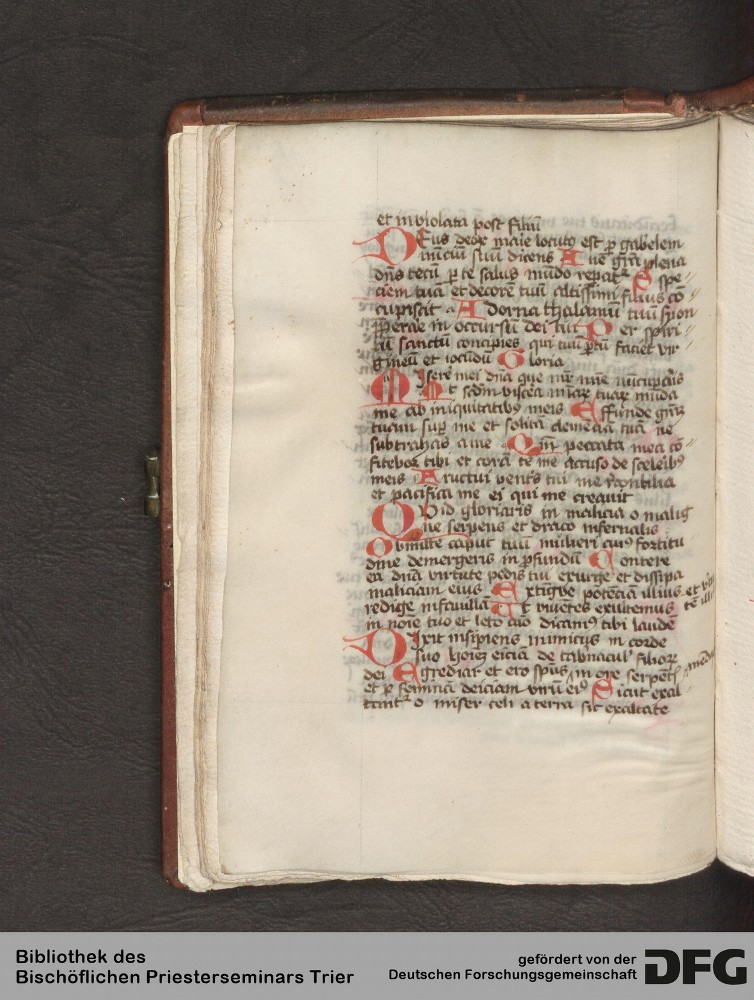 et inviolata post filiū
DEus deoꝝ marie locutꝰ est ꝑ gabrielem
nūciū suū dicens Aue grā plena
dn̄s tecū ꝑ te salus mūdo repatᷣ Spe
ciem tuā et decorē tuū altissimi filius cō
cupiscit Adorna thalamū tuū syon
ꝓpera in occursū dei tui Per spiri
tū sanctū concipies qui tuū ꝑtū faciet vir
gineū et iocūdū Gloria
MIsere mei dn̄a que mr̄ mīe nūcuparis
Et scdm viscera mīaꝝ tuaꝝ mūda
me ab iniquitatibꝰ meis Effunde grām
tuam suꝑ me et solitā clemēciā tuā ne
subtrahas a me Qm̄ peccata mea cō
fitebor tibi et corā te me accuso de sceleribꝰ
meis Fructui ventris tui me recōcilia
et pacifica me ei qui me creauit
QVid gloriaris in malicia o malig
ne serpens et draco infernalis
Submitte caput tuū mulieri cuiꝰ fortitu
dine demergeris in ꝓfundū Contere
eū dn̄a virtute pedis tui exurge et dissipa
maliciam eius Extingue potēciā illius et virtu
tē illi
redige in fauillā Vt viuētes exultemus
in noīe tuo et leto aīo dicamꝰ tibi laudē
DIxit insipiens inimicus in corde
suo hoīez eiciā de tabnaculᷣ filioꝝ
dei Egrediar et ero spūs in ore serpētis
et ꝑ feminā deiciam virū eiꝰ Sicut exal
tantᷣ o miser celi a terra sic exaltate
Bibliothek des
Bischöflichen Priesterseminars Trier
gefördert von der
Deutschen Forschungsgemeinschaft
DFG